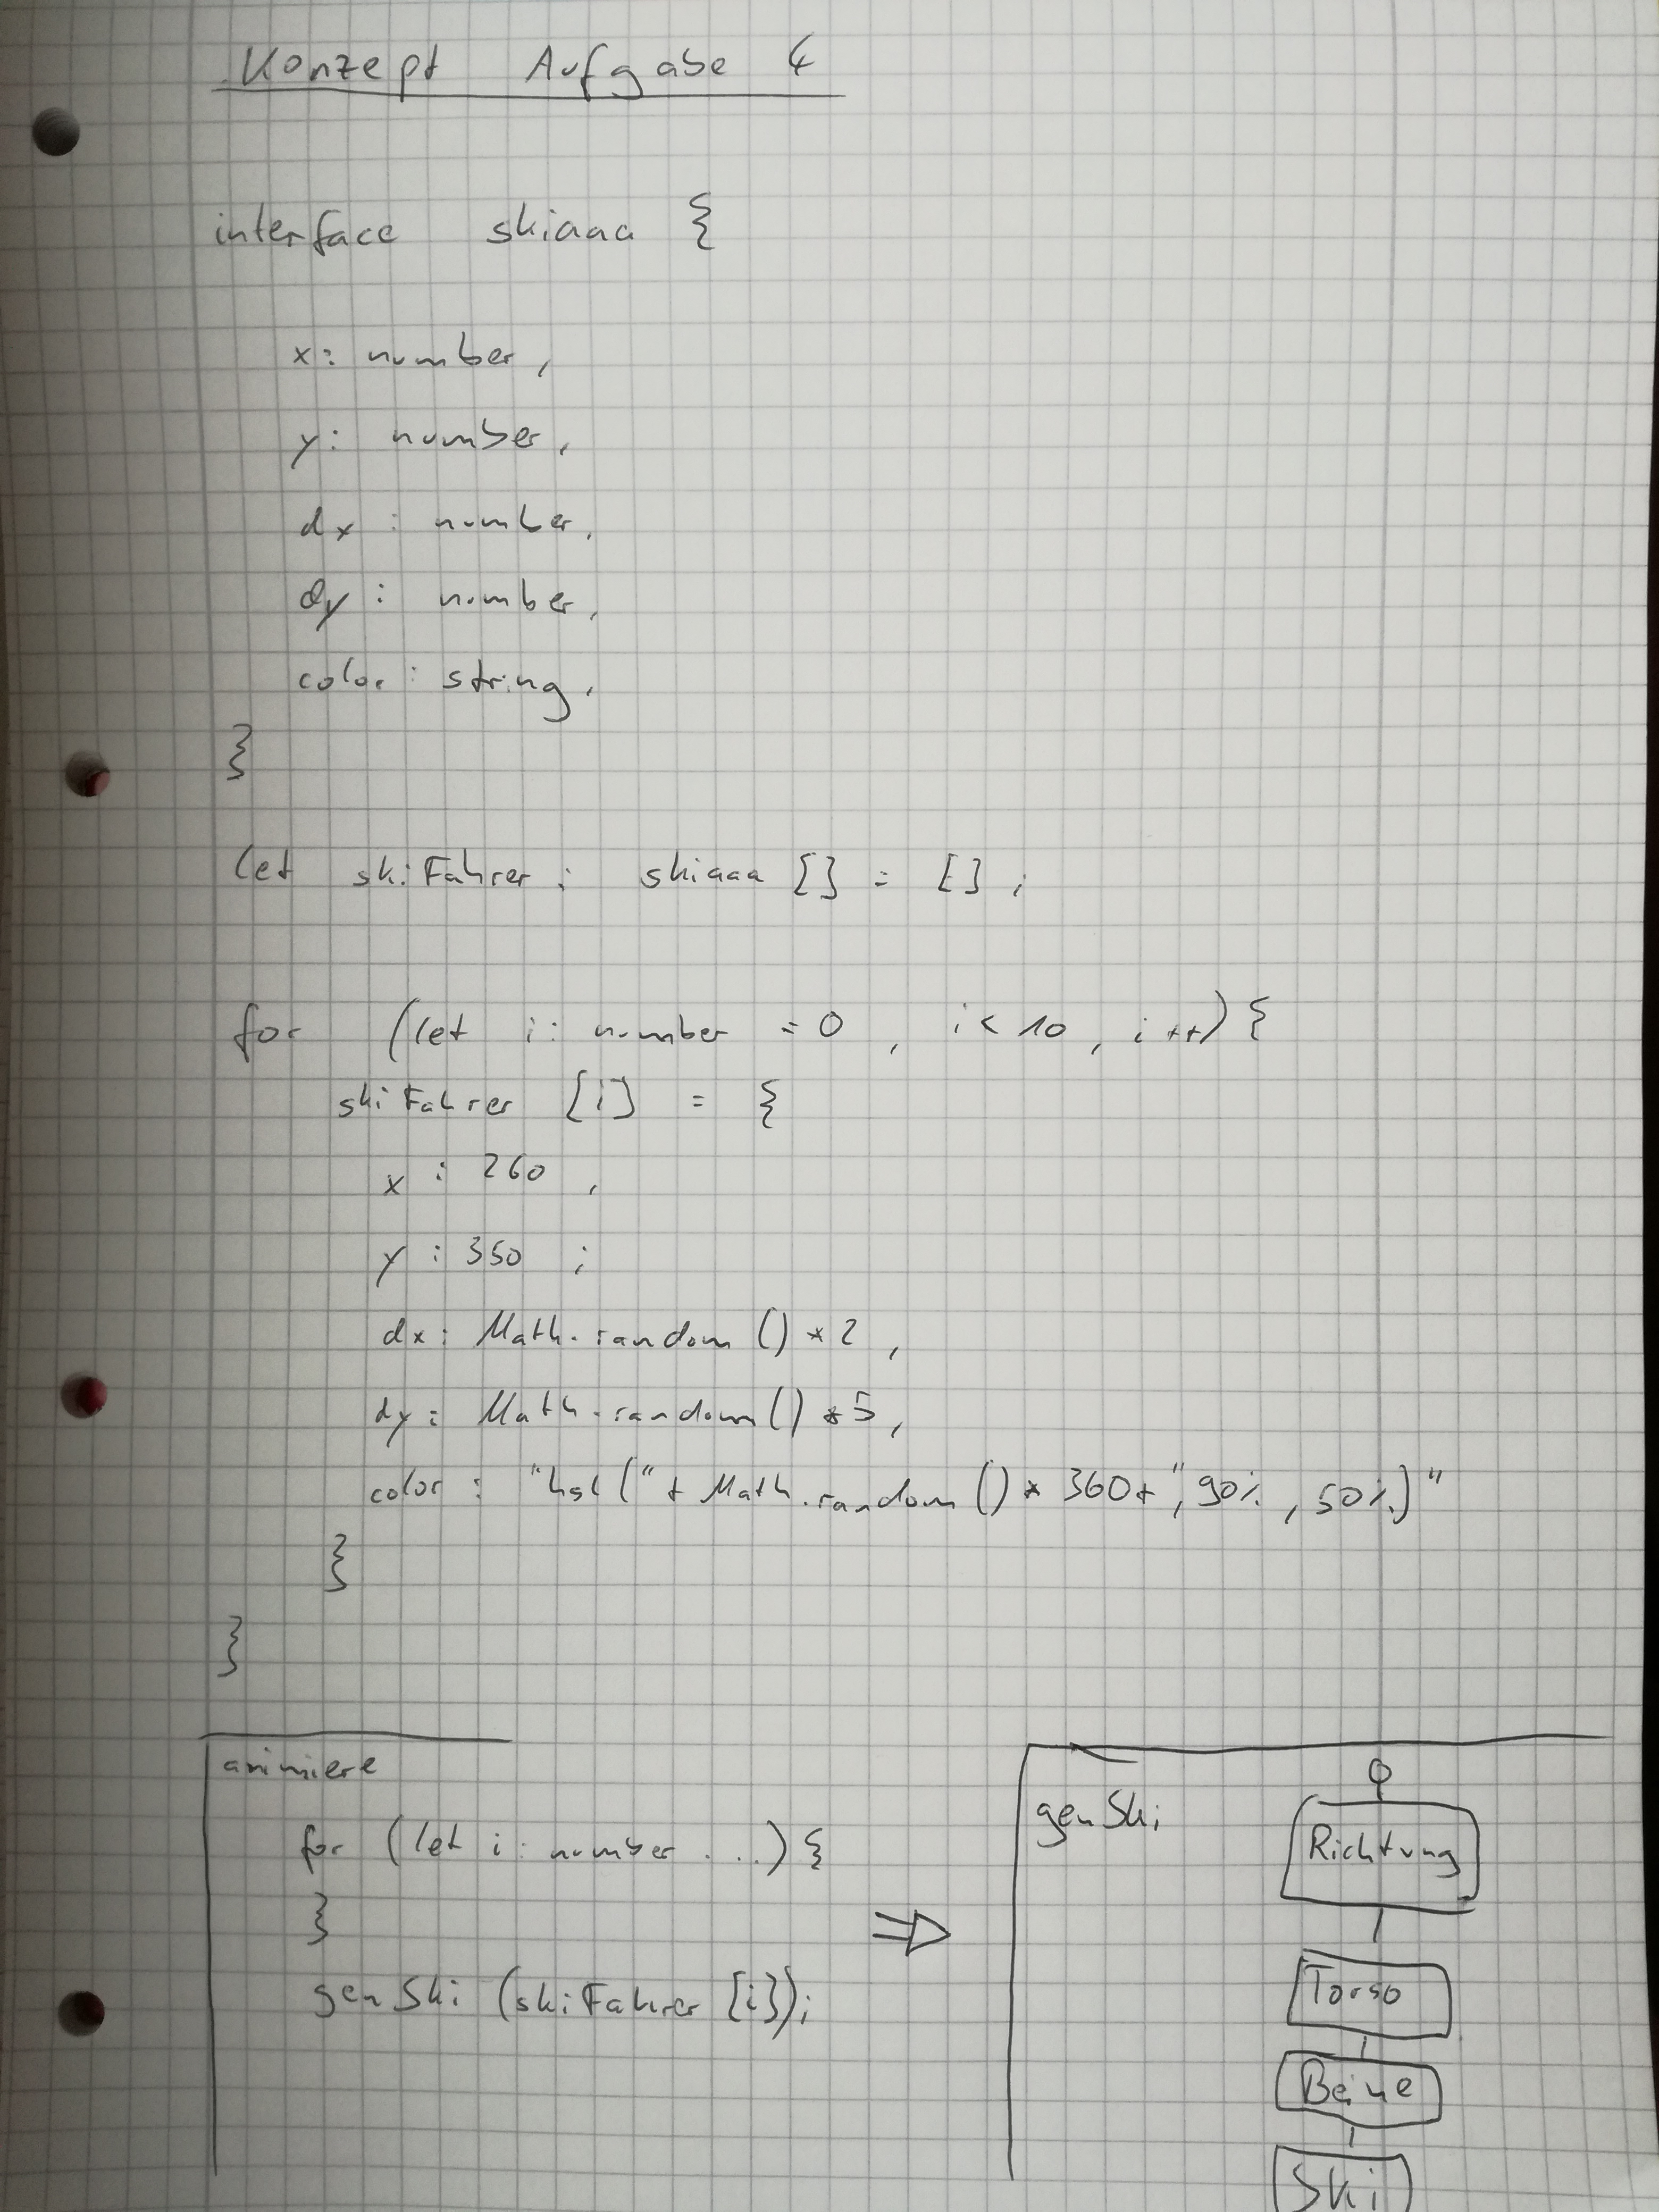 Konzept Aufgabe 4
interface skiaaa {
x: number,
y: number,
dx : number,
dy : number,
color : string,
}
let skiFahrer : skiaaa [] = [] ;
for (let i: number = 0 , i < 10 , i ++) {
skiFahrer [i] = {
x : 260 ,
y : 350 ;
dx : Math.random () * 2 ,
dy : Math.random () * 5 ,
color : "hsl(" + Math.random () * 360 + ", 90% , 50%)"
}
}
animiere
for (let i : number ...) {
}
genSki (skiFahrer [i]);
genSki
Richtung
Torso
Beine
Ski